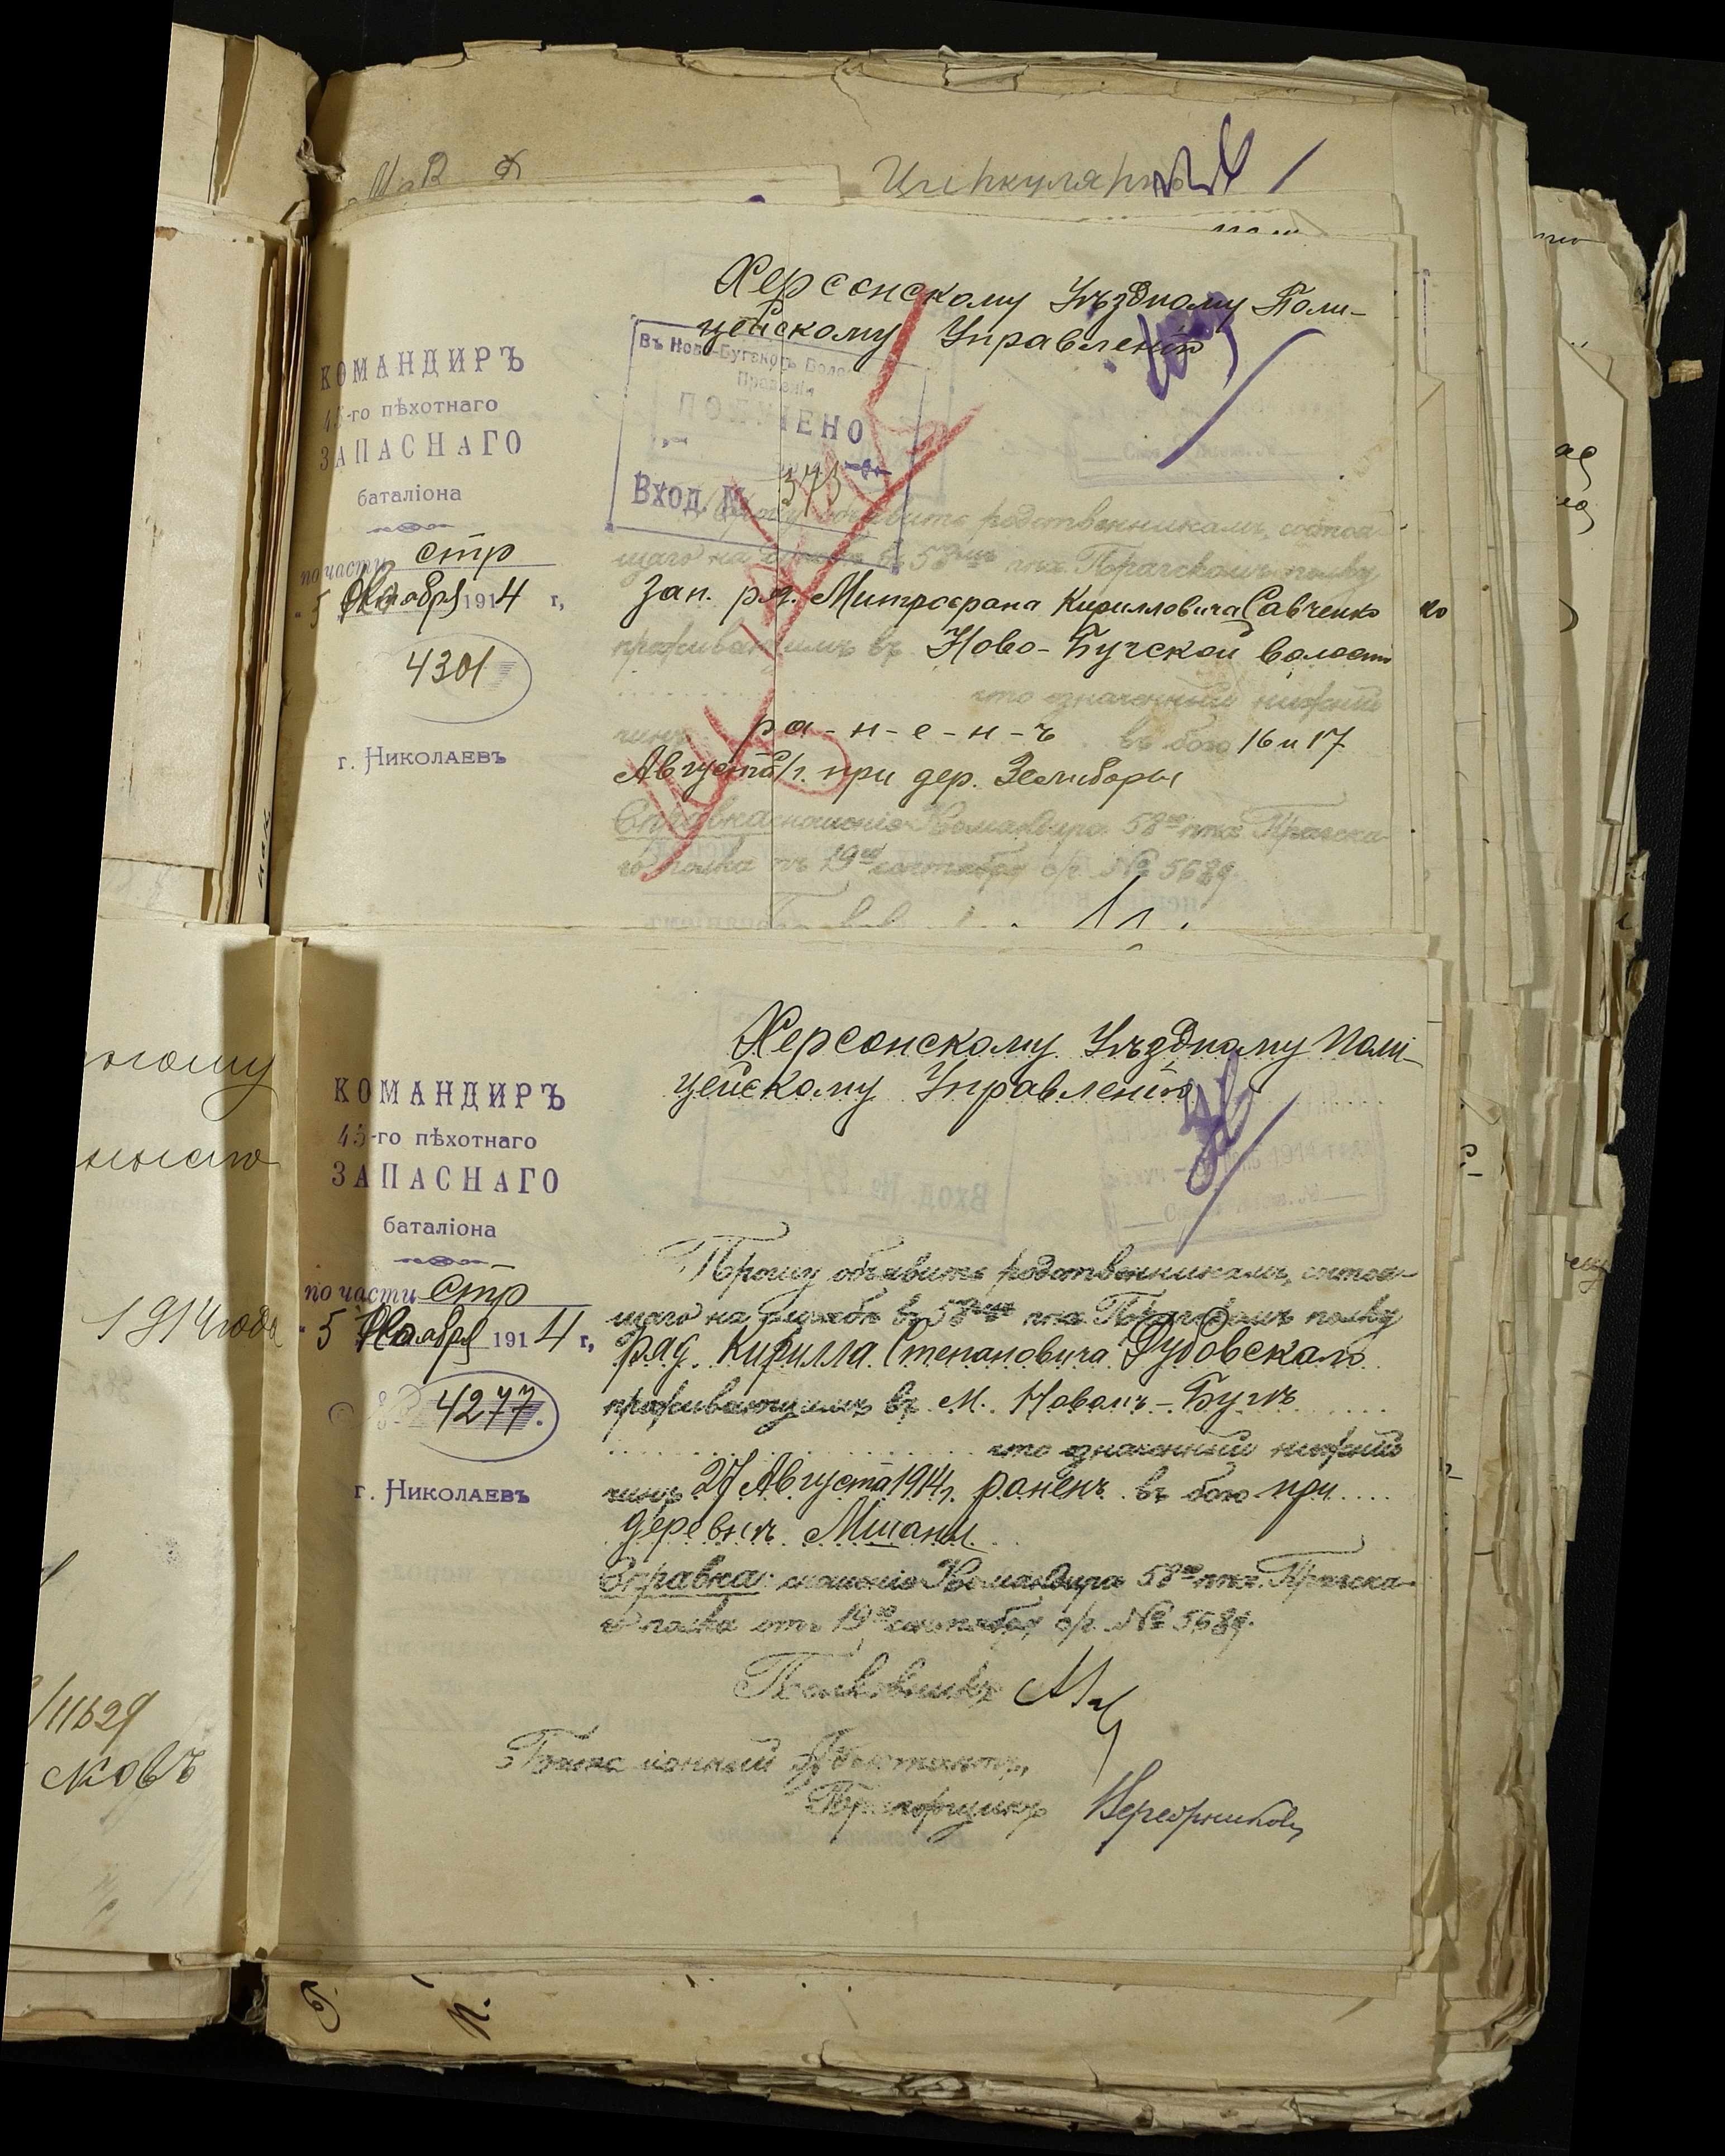 Циркулярно
Херсонскому Уѣздному Поли-
цейскому Управленію
Въ Ново-Бугскомъ Волос
Правленіи
ПОЛУЧЕНО
Вход. № 373
КОМАНДИРЪ
45-го пѣхотнаго
ЗАПАСНАГО
баталіона
по части стр
" 5 Октября 1914 г,
4301
г. Николаевъ
Прошу объявить родственникамъ, состоя-
щаго на службѣ въ 58мъ пѣх. Прагскомъ полку
Зап. ряд. Митрофана Кирилловича Савченко
проживающимъ въ Ново-Бугской волости
что означенный нижній
чинъ р а - н - е - н - ъ въ бою 16 и 17
Августа с/г. при дер. Зелиборы
Справка: сношеніе Командира 58го пѣх. Прагска-
го полка отъ 19го сентября с/г. № 5689.
Херсонскому Уѣздному Поли-
цейскому Управленію
КОМАНДИРЪ
45-го пѣхотнаго
ЗАПАСНАГО
баталіона
по части стр
" 5 Октября 1914 г,
4277.
г. Николаевъ
Прошу объявить родственникамъ, состоя-
щаго на службѣ въ 58мъ пѣх. Прагскомъ полку
ряд. Кирилла Степановича Дубовскаго
проживающимъ въ м. Новомъ-Бугѣ
что означенный нижній
чинъ 27 Августа 1914 г. раненъ въ бою при
деревнѣ Мшаны
Справка: сношеніе Командира 58го пѣх. Прагска-
го полка отъ 19го сентября с/г. № 5689.
Полковникъ
Баталіонный Адъютантъ,
Прапорщикъ
1914 года
/11629
сковъ